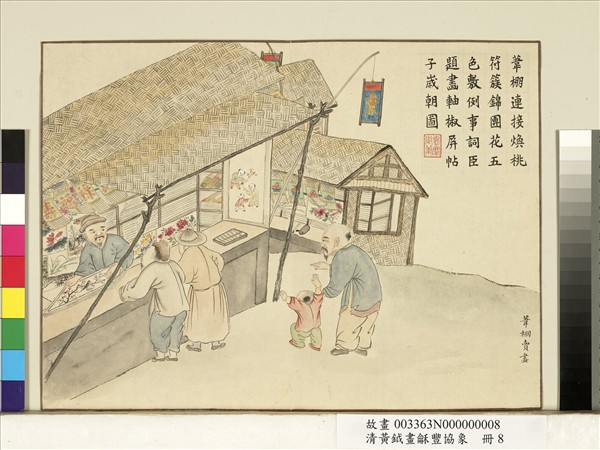 葦棚連接煥桃
符簇錦團花五
色敷例事詞臣
題畫軸椒屏帖
子歲朝圖
葦棚賣畫
故畫 003363N000000008
清黃鉞畫龢豐協象 冊 8